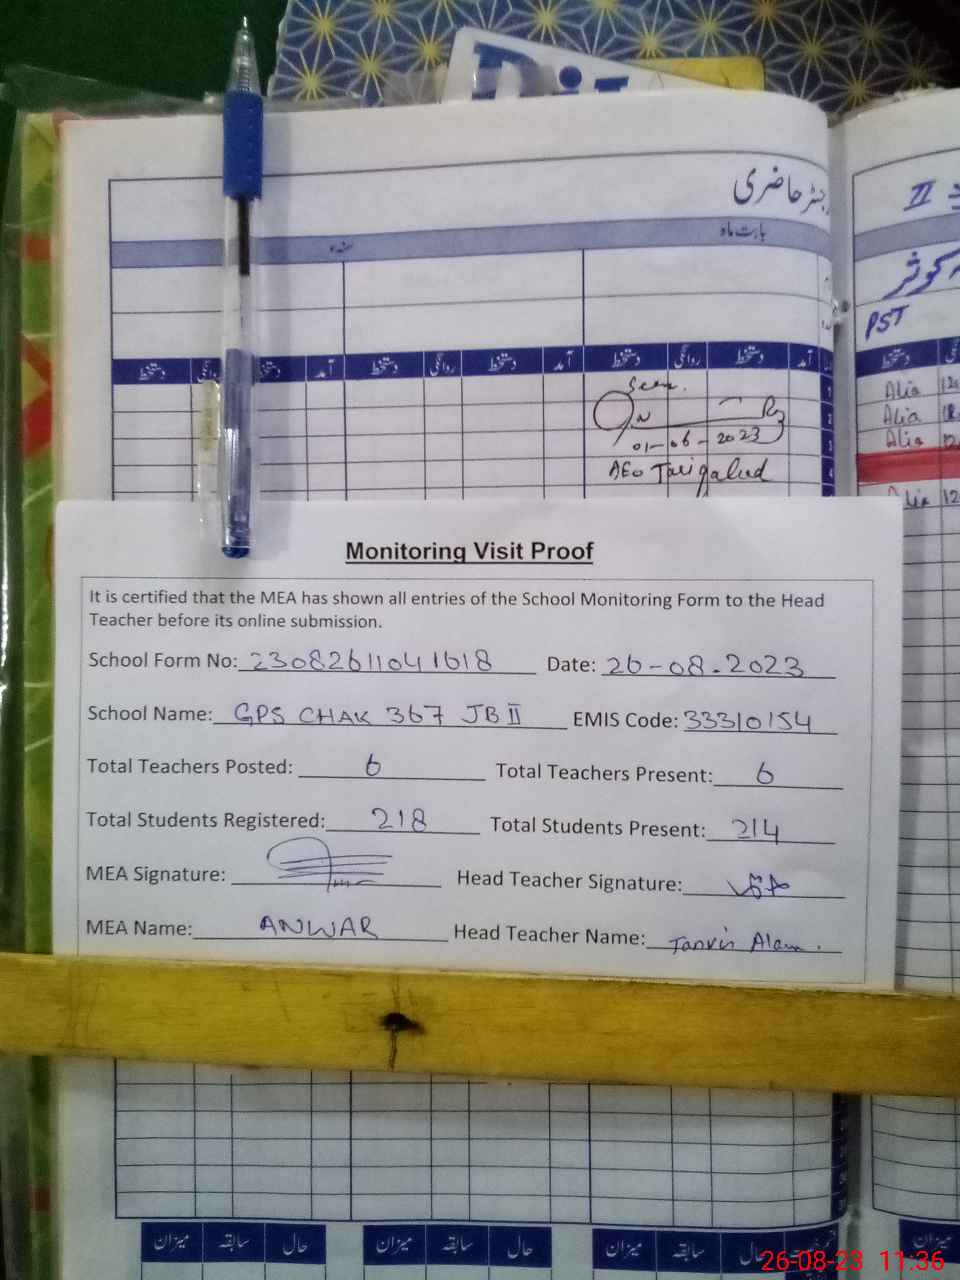 رجسٹر حاضری
II
بابت ماہ
سنہء
کوثر
PST
دستخط روانگی دستخط آمد دستخط روانگی دستخط آمد دستخط روانگی دستخط آمد
دستخط
Seen.
Alia
Alia
Alia
01-06-2023
AEO
Alia 12
Monitoring Visit Proof
It is certified that the MEA has shown all entries of the School Monitoring Form to the Head
Teacher before its online submission.
School Form No: 23082611041618 Date: 26-08-2023
School Name: GPS CHAK 367 JB II EMIS Code: 33310154
Total Teachers Posted: 6 Total Teachers Present: 6
Total Students Registered: 218 Total Students Present: 214
MEA Signature: Head Teacher Signature:
MEA Name: ANWAR Head Teacher Name: Tanvir Alam.
حال سابقہ میزان حال سابقہ میزان حال سابقہ میزان
میزان
26-08-23 11:36